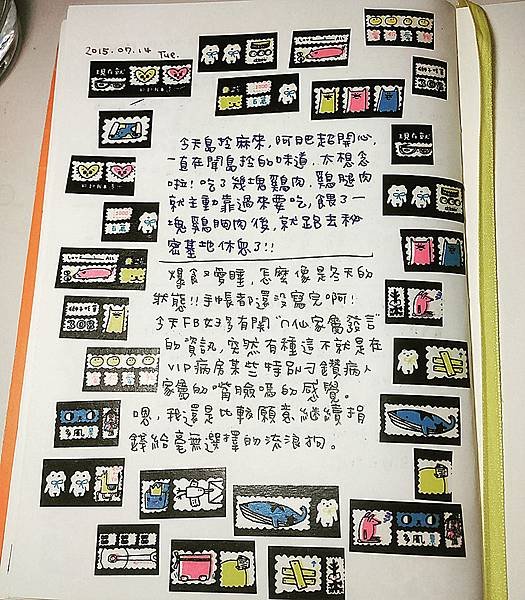 2015.07.14 Tue.
今天島拎麻來,阿肥超開心,
一直在聞島拎的味道,太想念
啦!吃了幾塊雞肉,雞腿肉
就主動靠過來要吃,餵了一
塊雞胸肉後,就跑去秘
密基地休息了!!
爆食又愛睡,怎麼像是冬天的
狀態!!手帳都還沒寫完啊!
今天FB好多有關"八仙家屬發言"
的資訊,突然有種這不就是在
VIP病房某些特別刁鑽病人
家屬的嘴臉嗎的感覺。
嗯,我還是比較願意繼續捐
錢給毫無選擇的流浪狗。
現在就
現在就
308